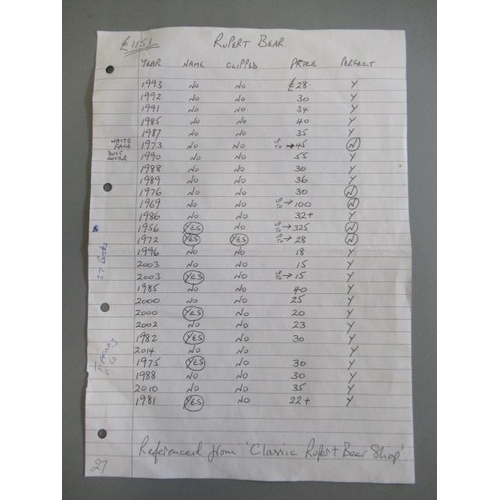 £1151 RUPERT BEAR.
YEAR NAME CLIPPED PRICE PERFECT
1993 NO NO £28. Y
1992 NO NO 30 Y
1991 NO NO 34 Y
1985 NO NO 40 Y
1987 NO NO 35 Y
WHITE FACE DUST COVER 1973 NO NO UP TO → 45 N
1990 NO NO 55 Y
1988 NO NO 30 Y
1989 NO NO 36 Y
1976 NO NO 30 N
1969 NO NO UP TO → 100 N
1986 NO NO 32+ Y
1956 YES NO UP TO → 325 N
1972 YES YES UP TO → 28 N
1996 NO NO 18 Y
2003 NO NO 15 Y
2003 YES NO UP TO → 15 Y
1985 NO NO 40 Y
2000 NO NO 25 Y
2000 YES NO 20 Y
2002 NO NO 23 Y
1982 YES NO 30 Y
2014 NO NO Y
1975 YES NO 30 Y
1988 NO NO 30 Y
2010 NO NO 35 Y
1981 YES NO 22+ Y
Referenced from 'Classic Rupert Bear Shop'
27 books
327